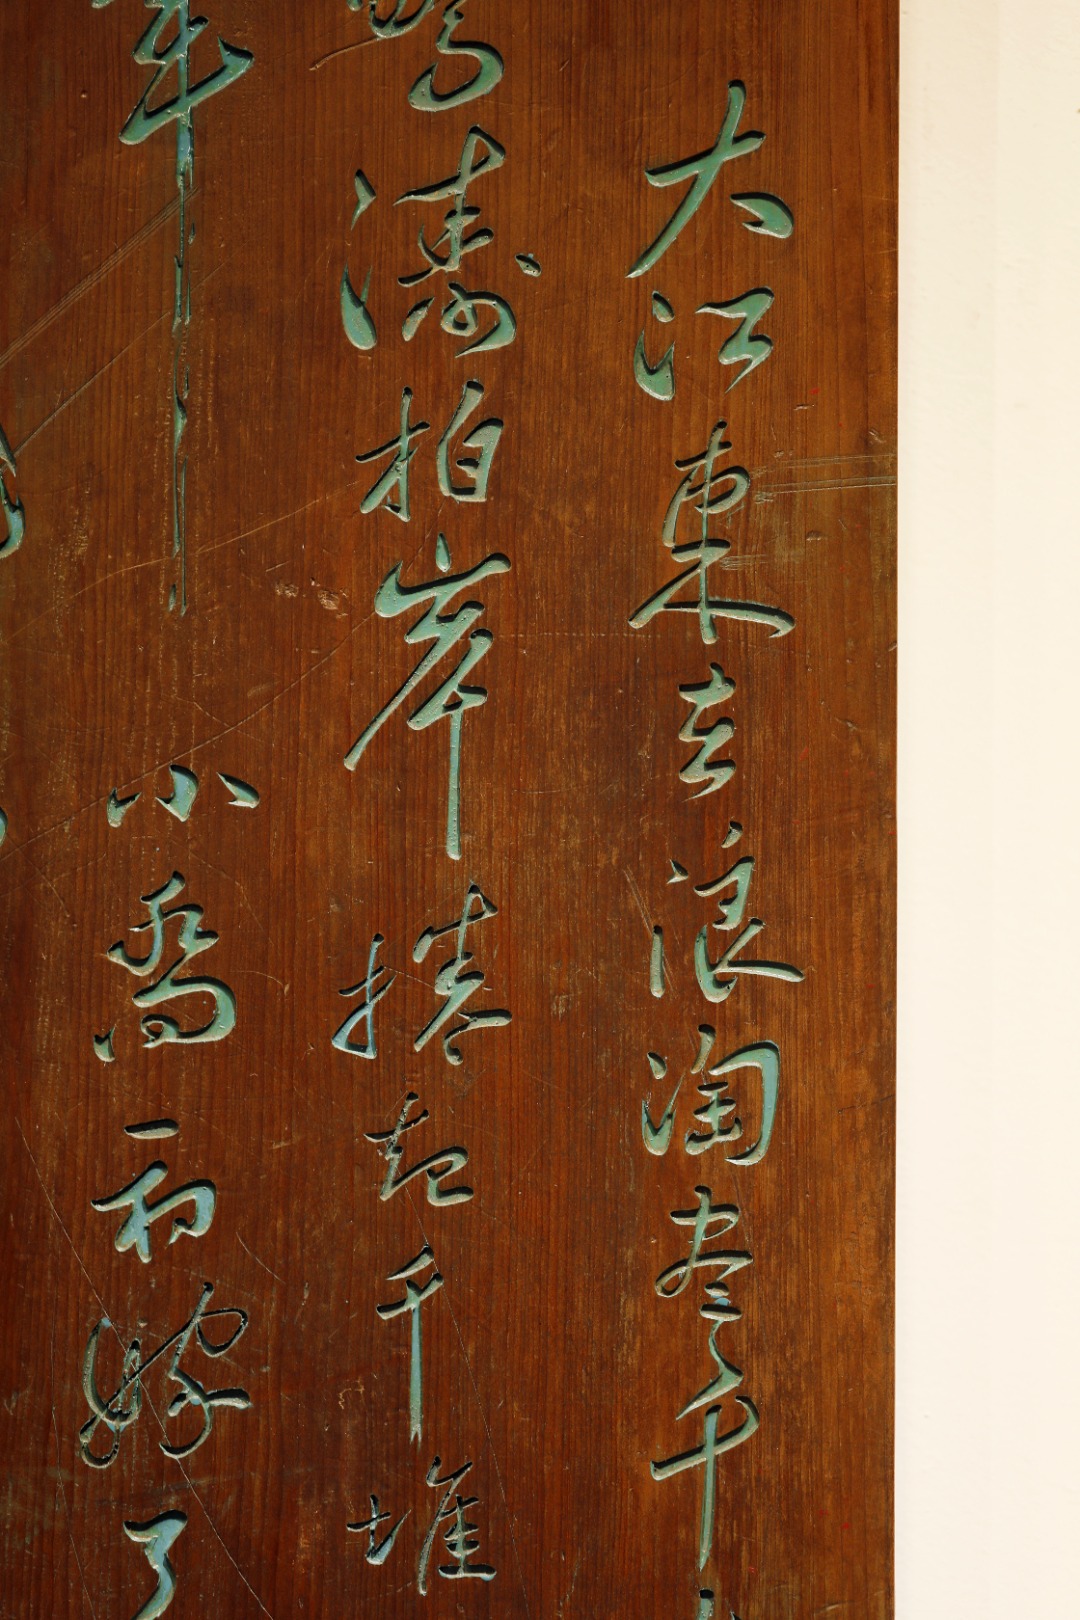 大江東去浪淘尽千
濤拍岸捲起千堆
年小喬初嫁了